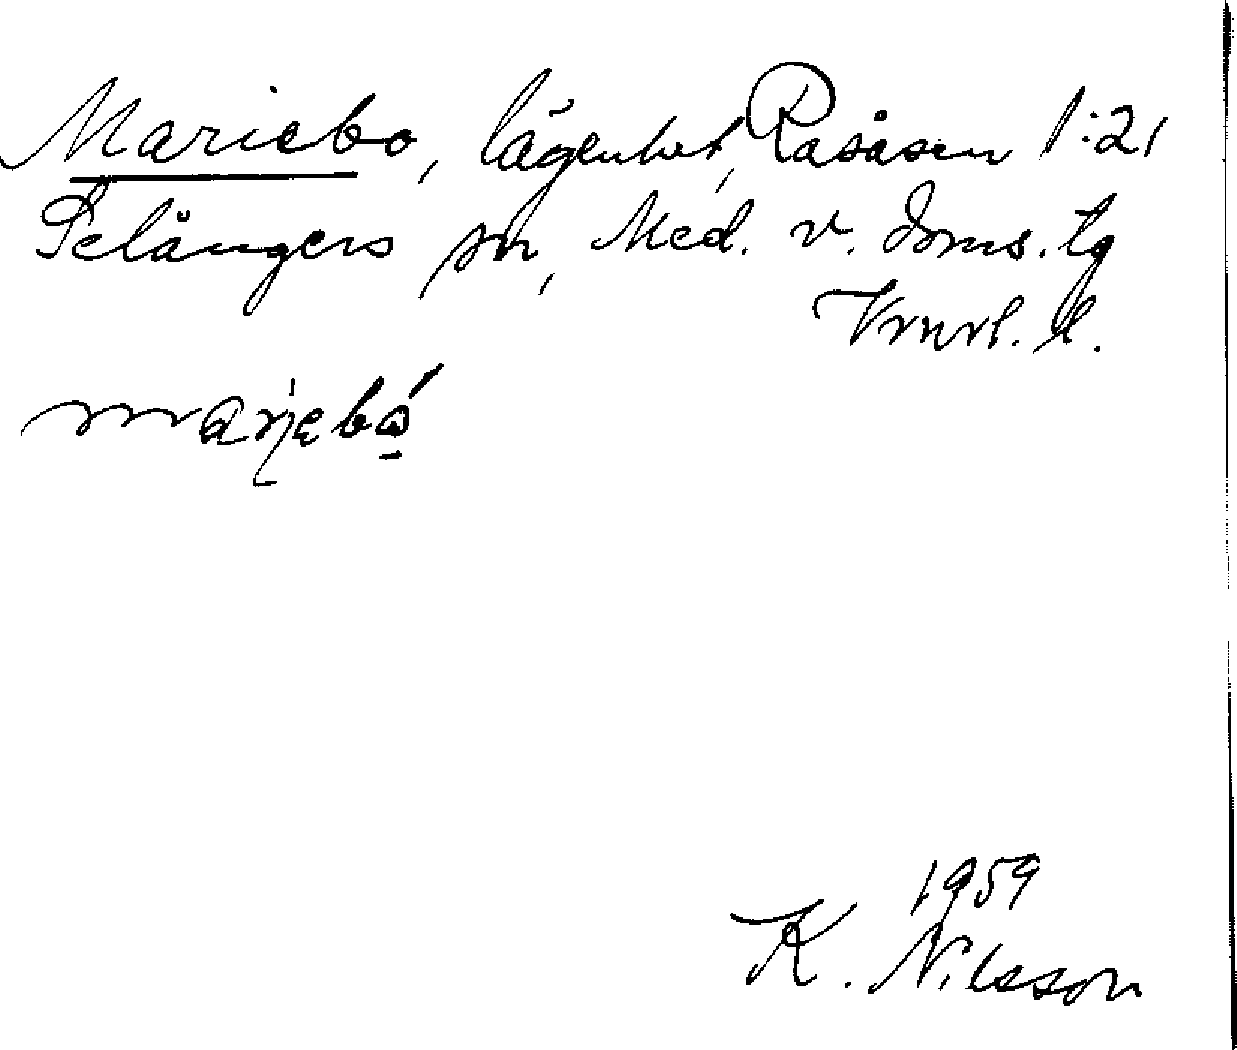 Mariebo, lägenhet, Råsåsen 1:21
Selångers sn, Med. v. doms. tg
Vrnrl. l.
marjebó
1959
K. Nilsson